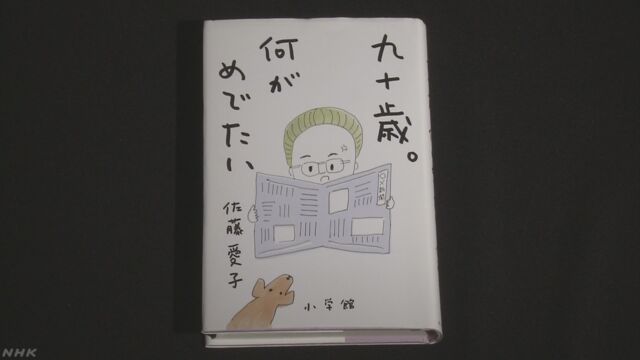 九十歳。
何が
めでたい
佐藤愛子
小学館
NHK